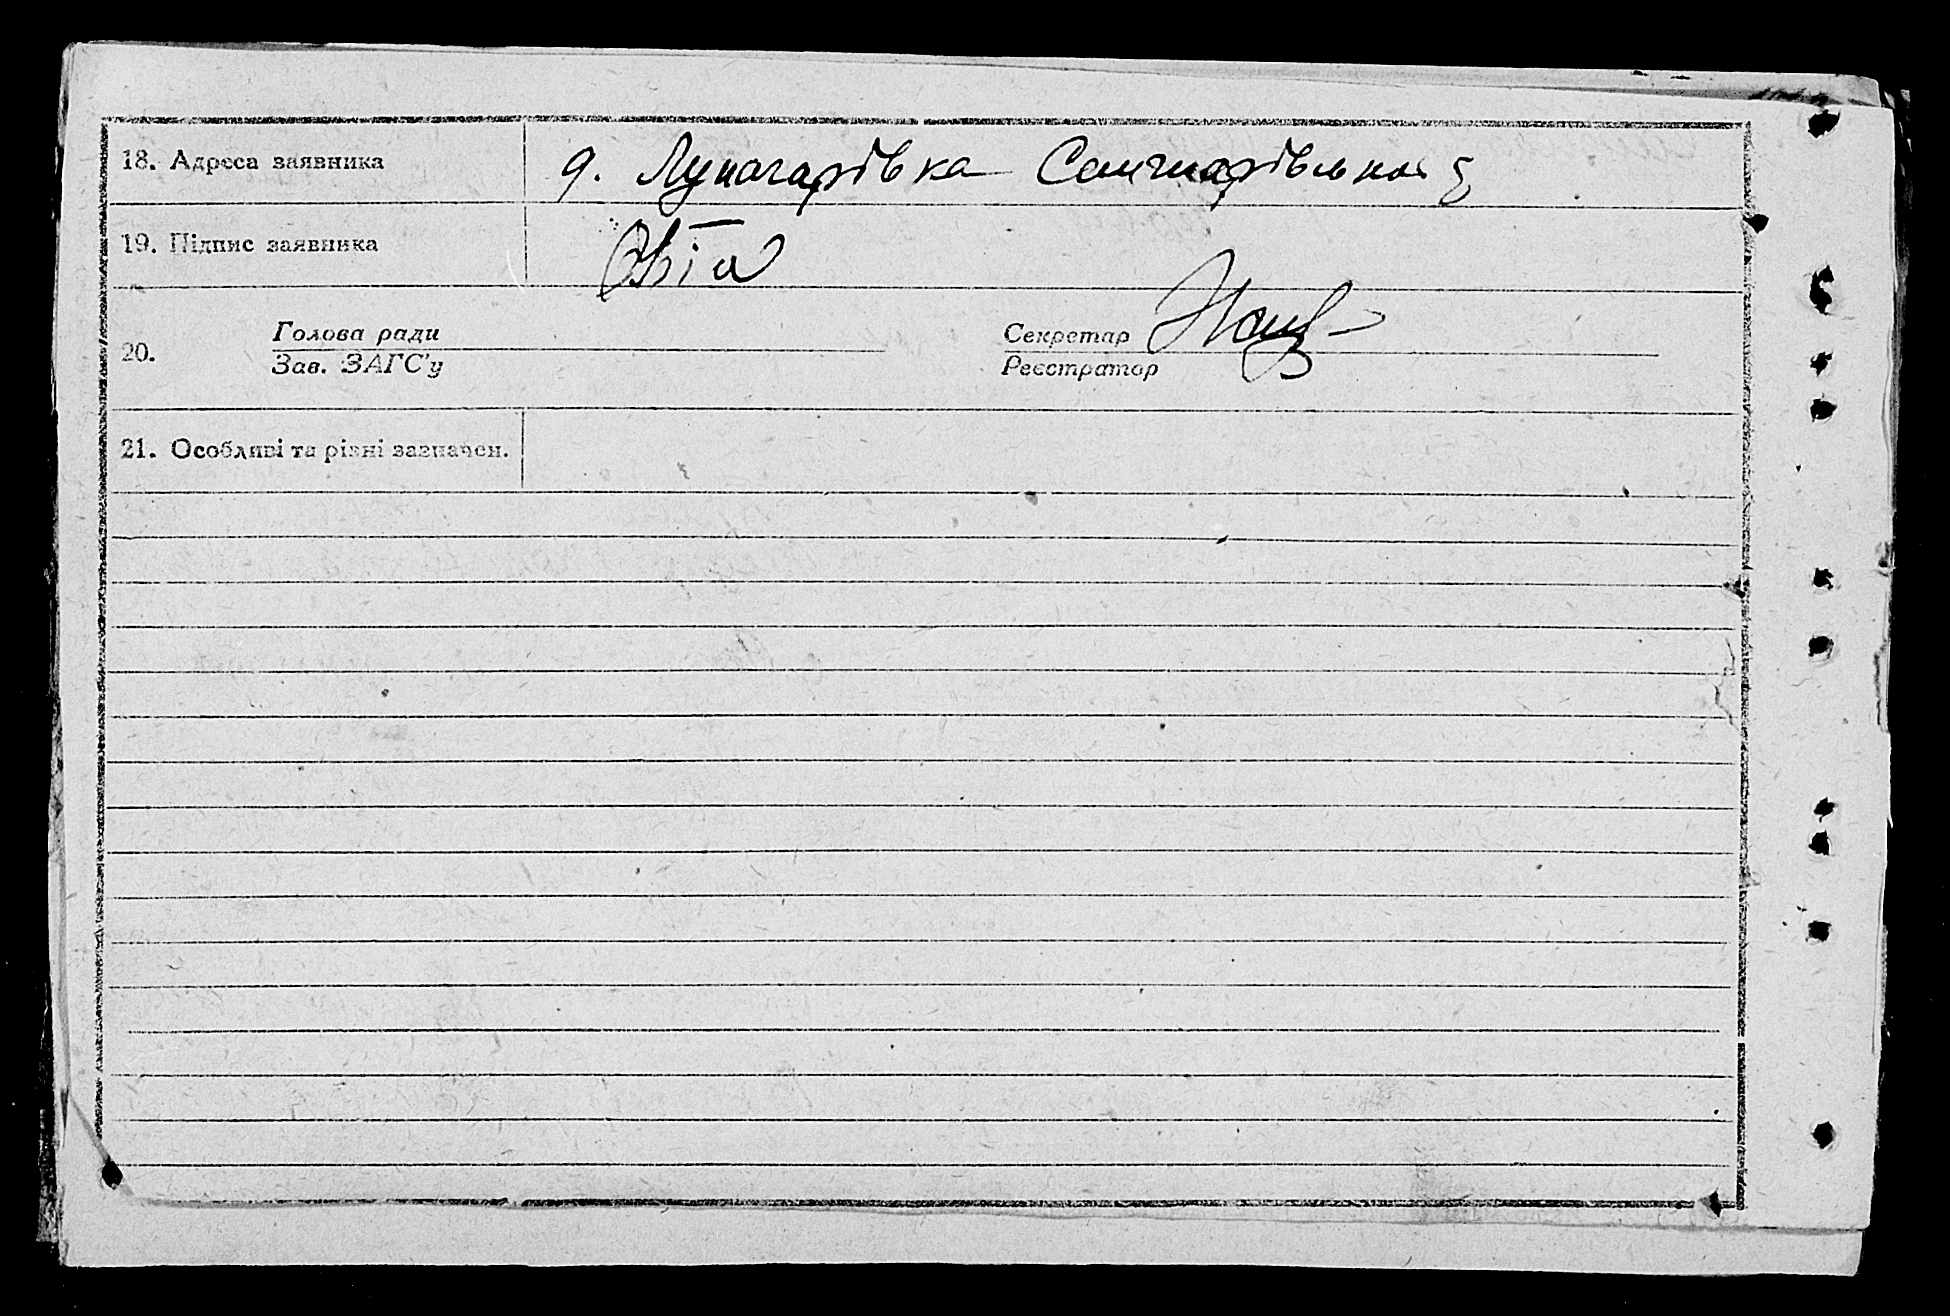 18. Адреса заявника д. Луначарівка
19. Підпис заявника
20. Голова ради Секретар
Зав. ЗАГС'у Реєстратор
21. Особливі та різні зазначен.